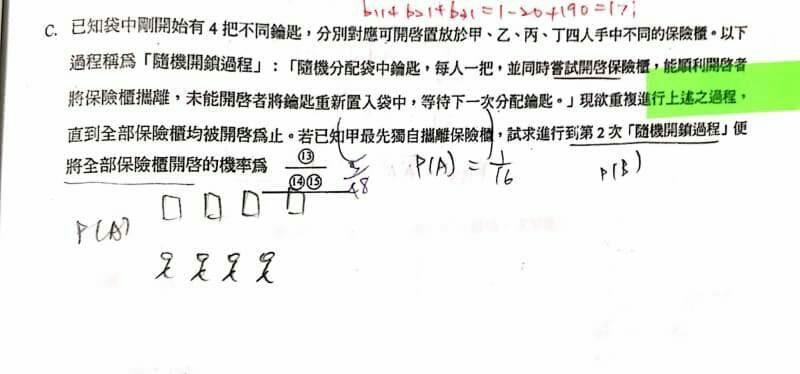 b₁₁+b₂₁+b₃₁=1-20+190=171
C. 已知袋中剛開始有 4 把不同鑰匙，分別對應可開啟置放於甲、乙、丙、丁四人手中不同的保險櫃。以下
過程稱為「隨機開鎖過程」：「隨機分配袋中鑰匙，每人一把，並同時嘗試開啟保險櫃，能順利開啟者
將保險櫃攜離，未能開啟者將鑰匙重新置入袋中，等待下一次分配鑰匙。」現欲重複進行上述之過程，
直到全部保險櫃均被開啟為止。若已知甲最先獨自攜離保險櫃，試求進行到第 2 次「隨機開鎖過程」便
將全部保險櫃開啟的機率為 ⑬/⑭⑮ /48 P(A) = 1/16 P(B)
P(A)